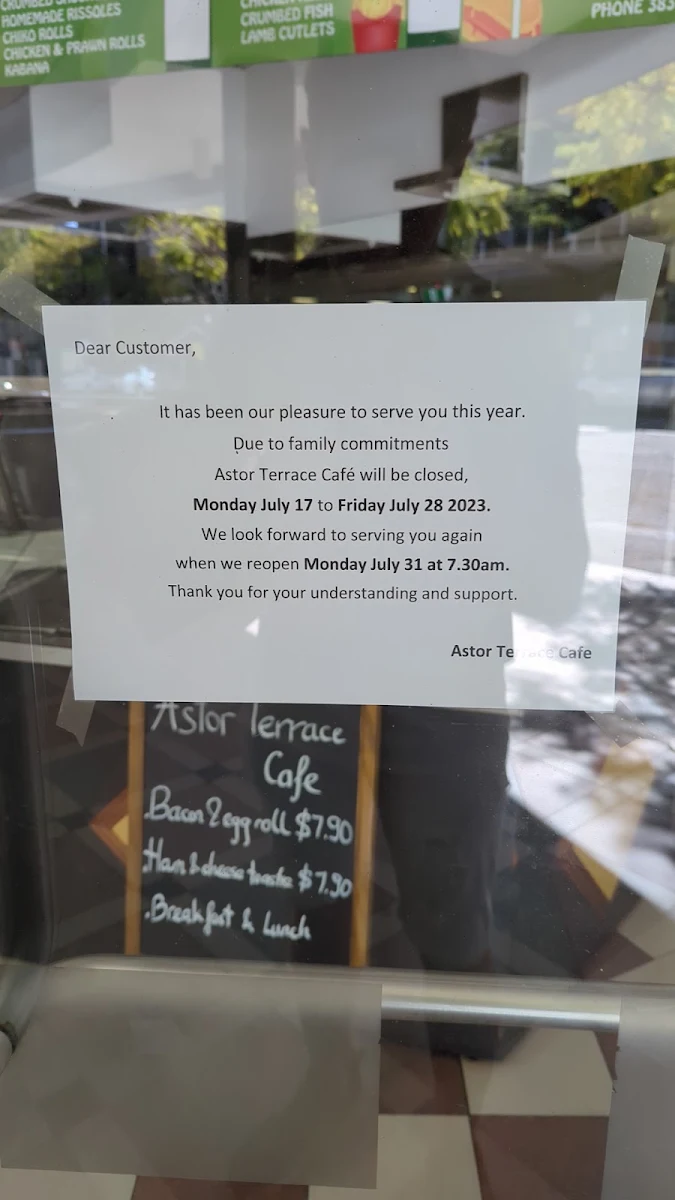 HOMEMADE RISSOLES
CHIKO ROLLS
CHICKEN & PRAWN ROLLS
KABANA
CRUMBED FISH
LAMB CUTLETS
PHONE 383
Dear Customer,
It has been our pleasure to serve you this year.
Due to family commitments
Astor Terrace Café will be closed,
Monday July 17 to Friday July 28 2023.
We look forward to serving you again
when we reopen Monday July 31 at 7.30am.
Thank you for your understanding and support.
Astor Terrace Cafe
Astor Terrace
Cafe
.Bacon & egg roll $7.90
.Ham & cheese toastie $7.90
.Breakfast & Lunch